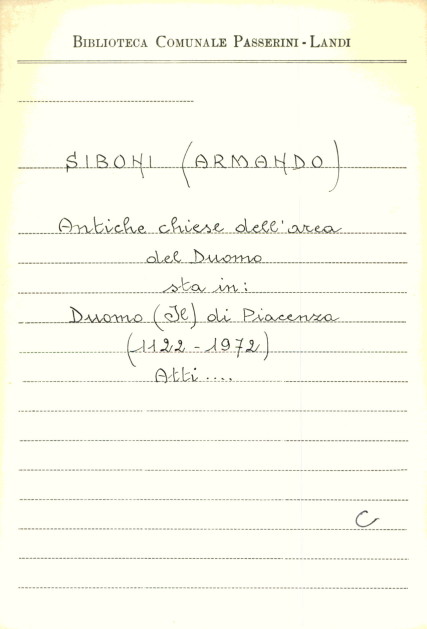 BIBLIOTECA COMUNALE PASSERINI - LANDI
SIBONI (ARMANDO)
Antiche chiese dell'area
del Duomo
sta in:
Duomo (Il) di Piacenza
(1122 - 1972)
Atti ....
C